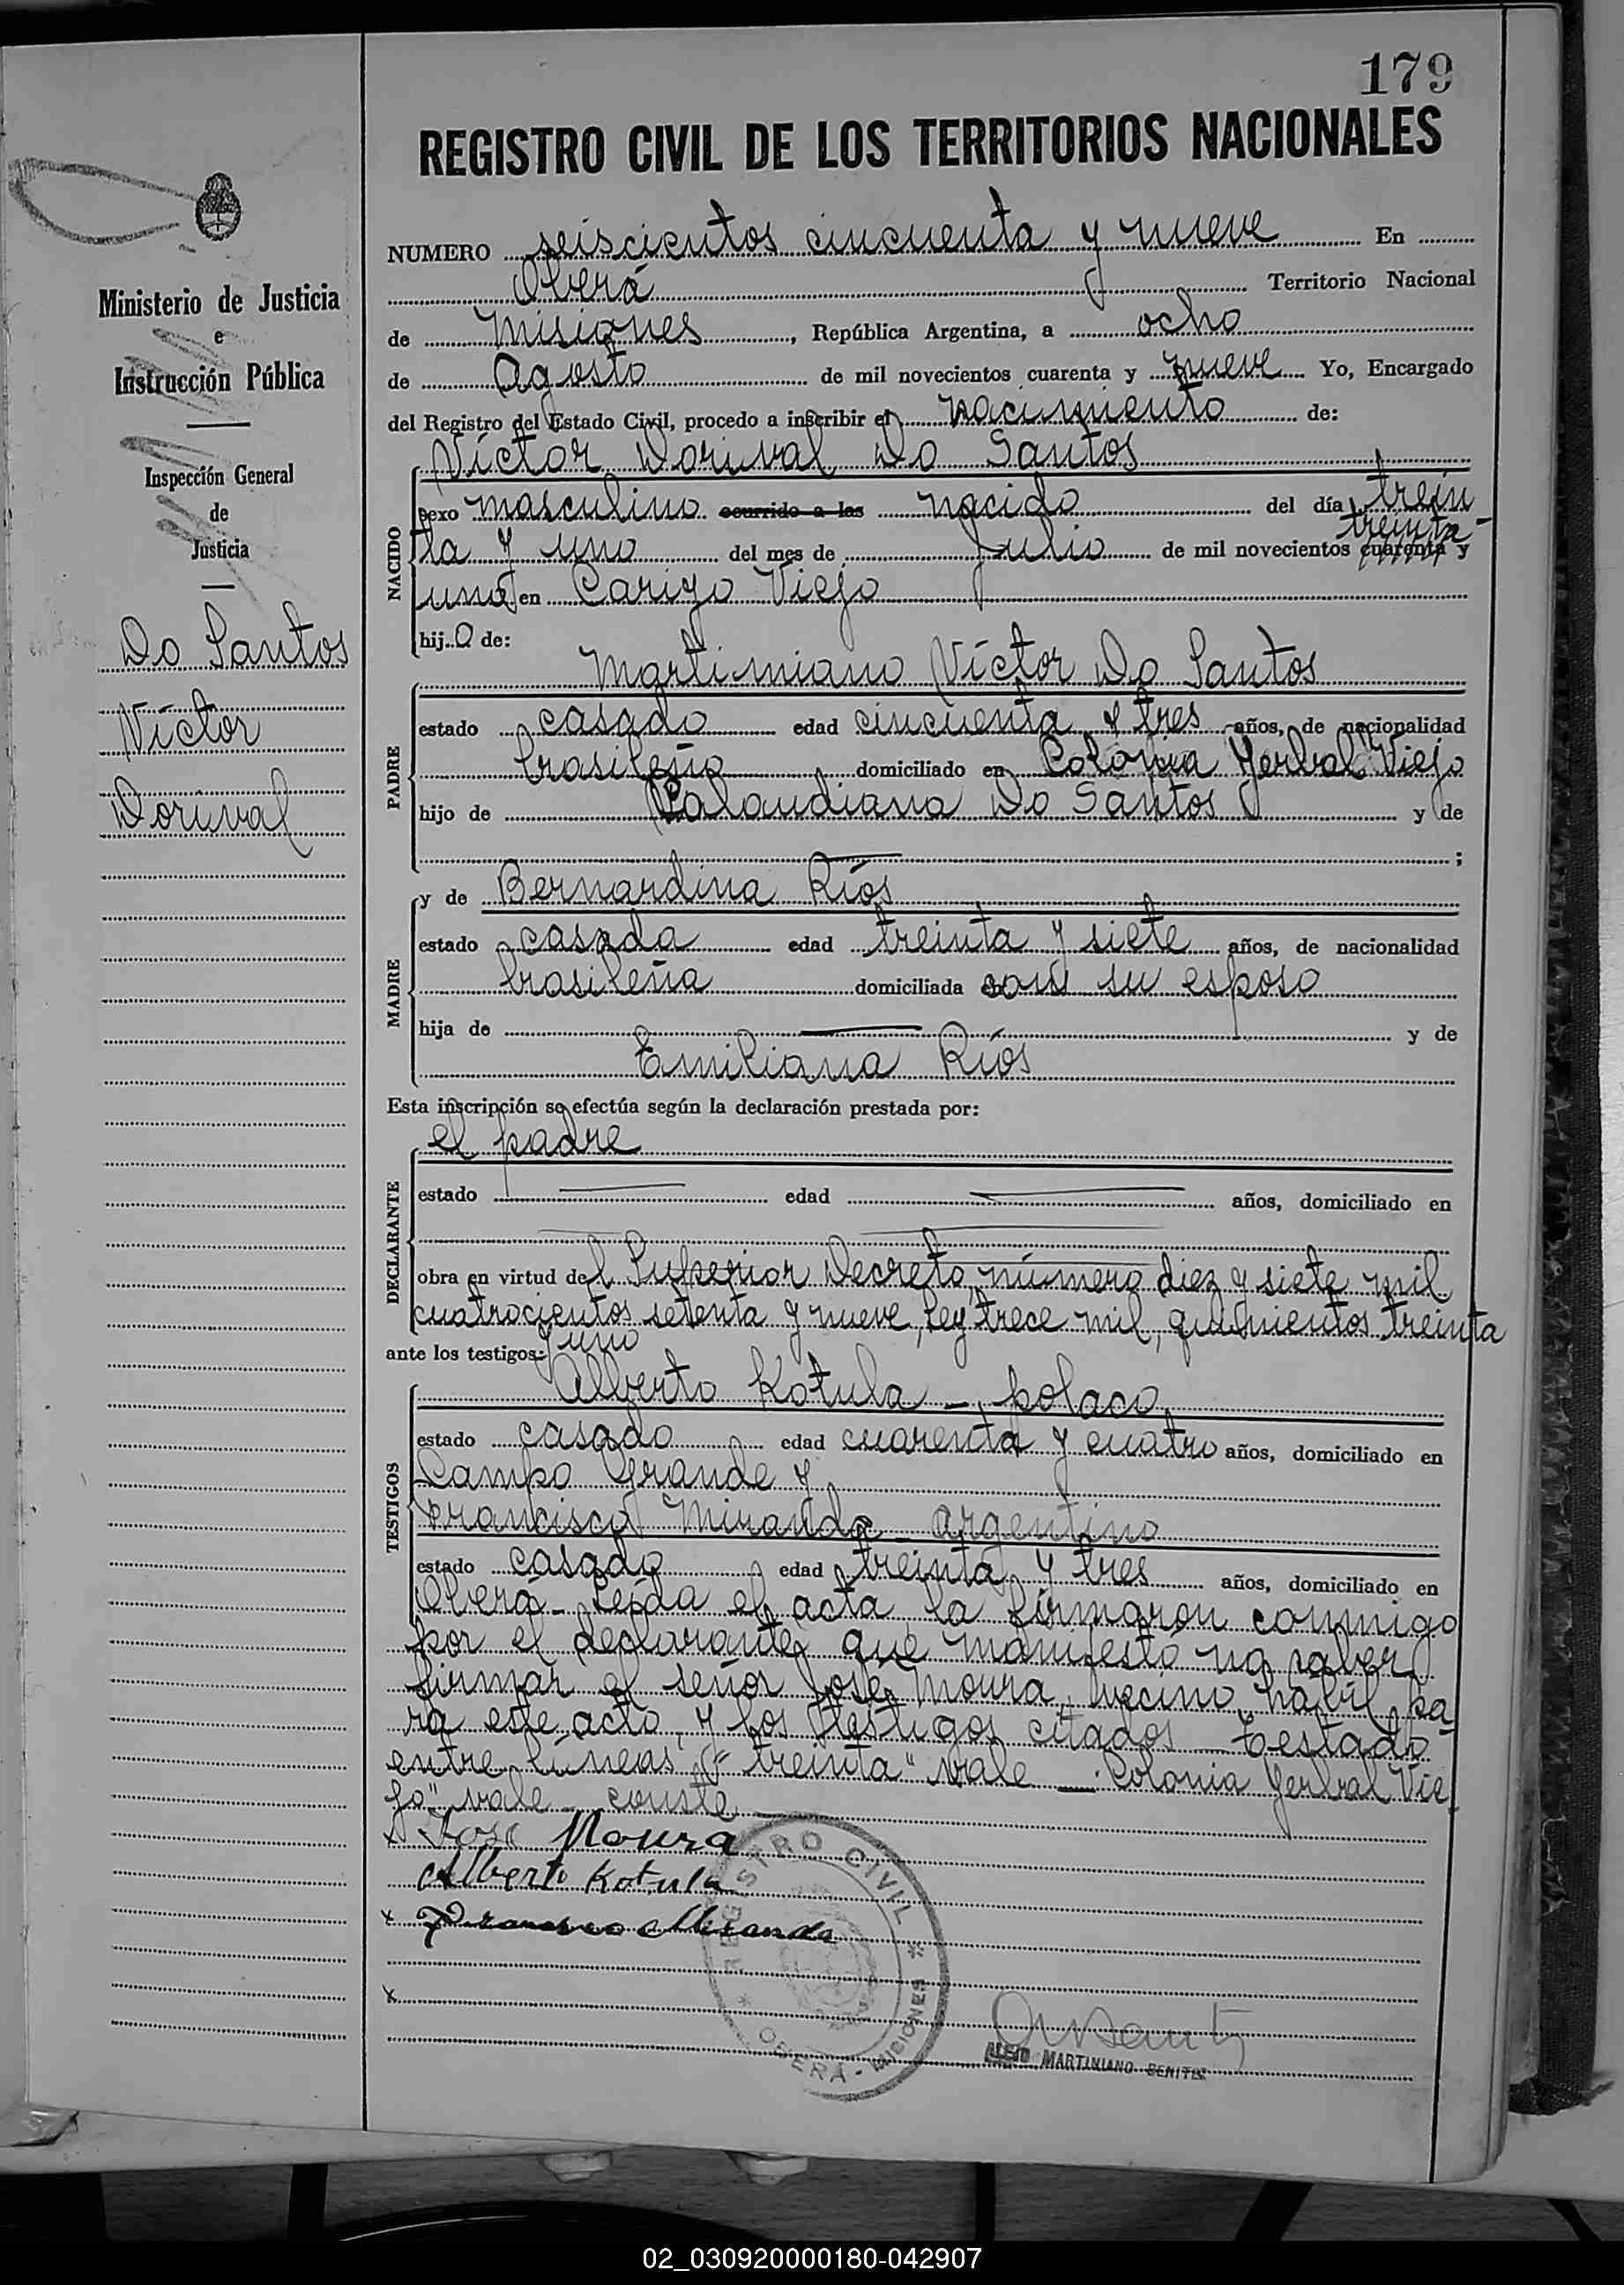 179
REGISTRO CIVIL DE LOS TERRITORIOS NACIONALES
Ministerio de Justicia
e
Instrucción Pública
Inspección General
de
Justicia
Do Santos
Víctor
Dorival
NUMERO seiscientos cincuenta y nueve En
Oberá Territorio Nacional
de Misiones, República Argentina, a ocho
de Agosto de mil novecientos cuarenta y nueve Yo, Encargado
del Registro del Estado Civil, procedo a inscribir el nacimiento de:
Víctor Dorival Do Santos
NACIDO
sexo masculino ocurrido a las nacido del día trein
treinta
ta y uno del mes de Julio de mil novecientos cuarenta y
uno en Cariyo Viejo
hijo de:
Martimiano Víctor Do Santos
PADRE
estado casado edad cincuenta y tres años, de nacionalidad
brasileña domiciliado en Colonia Yerbal Viejo
hijo de Do Santos y de
;
MADRE
y de Bernardina Ríos
estado casada edad treinta y siete años, de nacionalidad
brasileña domiciliada con su esposo
hija de y de
Emiliana Ríos
Esta inscripción se efectúa según la declaración prestada por:
el padre
DECLARANTE
estado edad años, domiciliado en
obra en virtud del Superior Decreto número diez y siete mil
cuatrocientos setenta y nueve, ley trece mil, quinientos treinta
y uno
ante los testigos:
Alberto Kotula - polaco
TESTIGOS
estado casado edad cuarenta y cuatro años, domiciliado en
Campo Grande y
Francisco Miranda - argentino
estado casado edad treinta y tres años, domiciliado en
Oberá - Leída el acta, la firmaron conmigo
por el declarante que manifestó no saber
firmar el señor José Moura, vecino hábil pa
ra este acto, y los testigos citados - Testado
entre líneas "treinta" vale - "Colonia Yerbal Vie
jo" vale conste
x José Moura
Alberto Kotula
x Francisco Miranda
x
REGISTRO CIVIL
* OBERA - MISIONES *
MARTINIANO BENITEZ
02_030920000180-042907